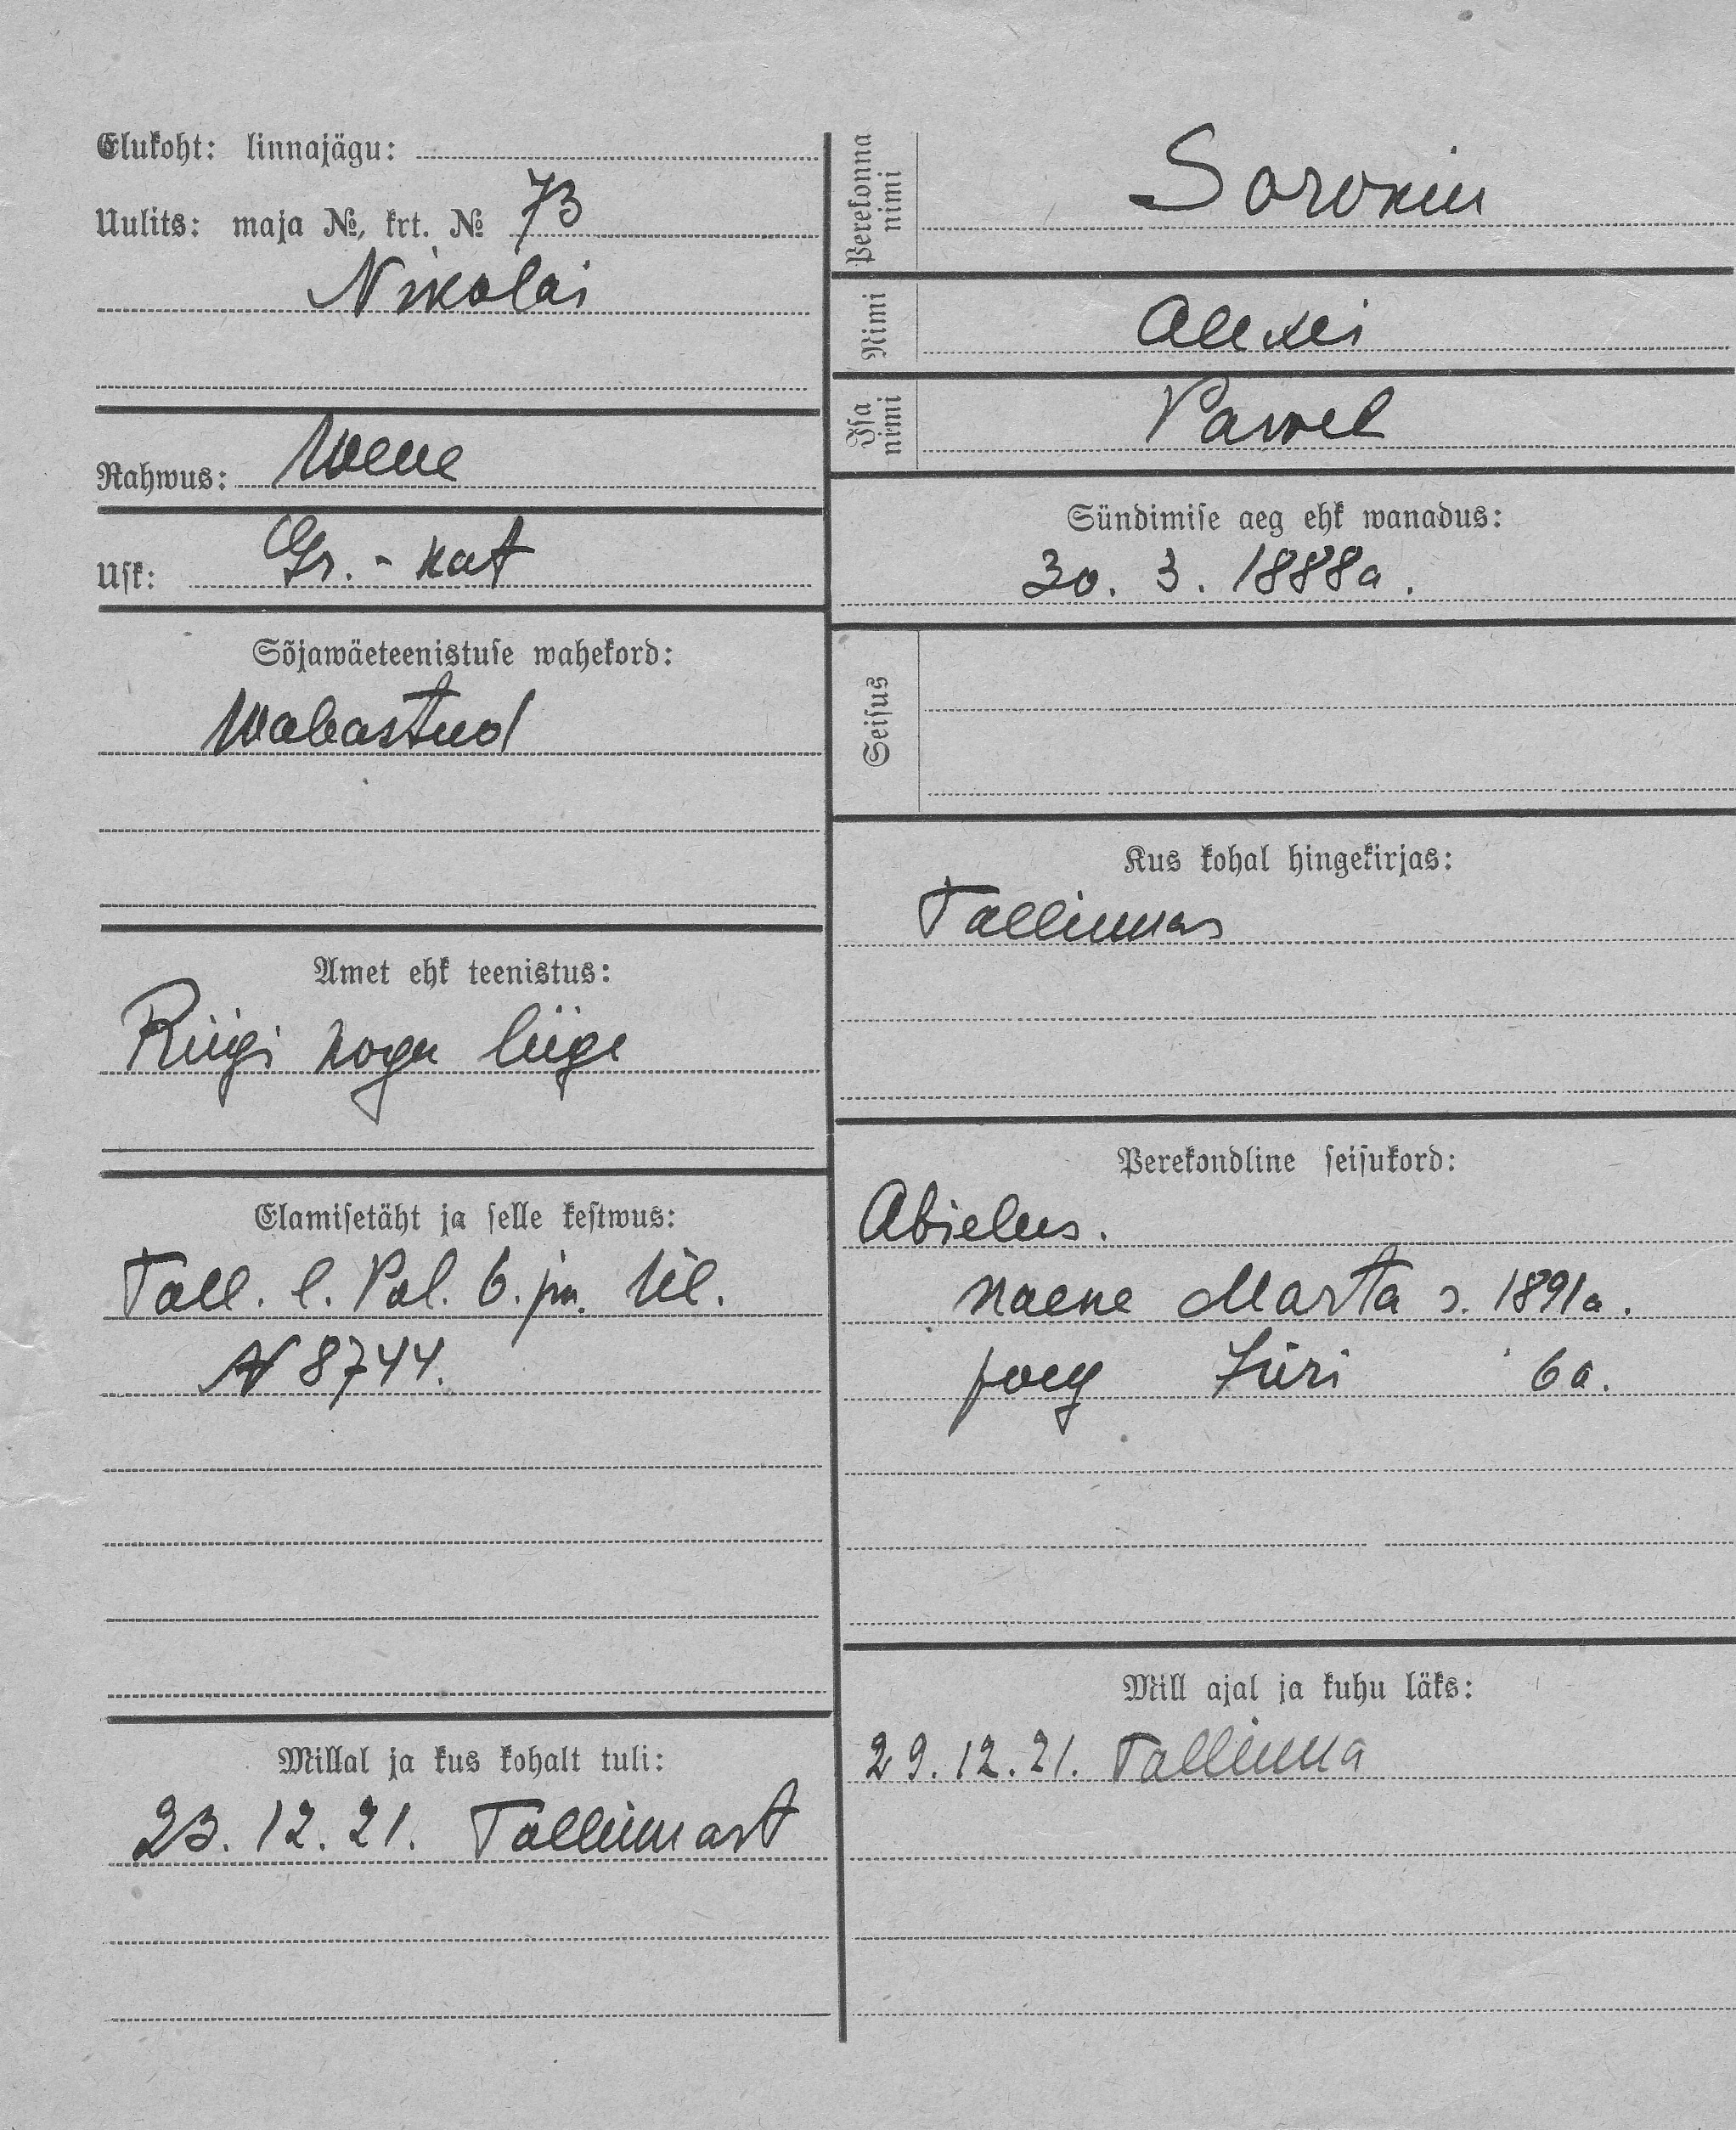 Elukoht: linnajägu:
Uulits: maja №, krt. № 73
Nikolai
Rahwus: Wene
Usk: Gr.-kat
Sõjawäeteenistuse wahekord:
Wabastud
Amet ehk teenistus:
Riigi kogu liige
Elamisetäht ja selle kestwus:
Tall. l. Pol. 6. jsk. Ül.
N 8744.
Millal ja kus kohalt tuli:
23. 12. 21. Tallinnast
Peresonna nimi
Sorokin
Nimi
Alexei
Isa nimi
Pawel
Sündimise aeg ehk wanadus:
30. 3. 1888a.
Seisus
Kus kohal hingekirjas:
Tallinnas
Perekondline seisukord:
Abielus.
naene Marta s. 1891a.
poeg Jüri 6a.
Mill ajal ja kuhu läks:
29. 12. 21. Tallinna